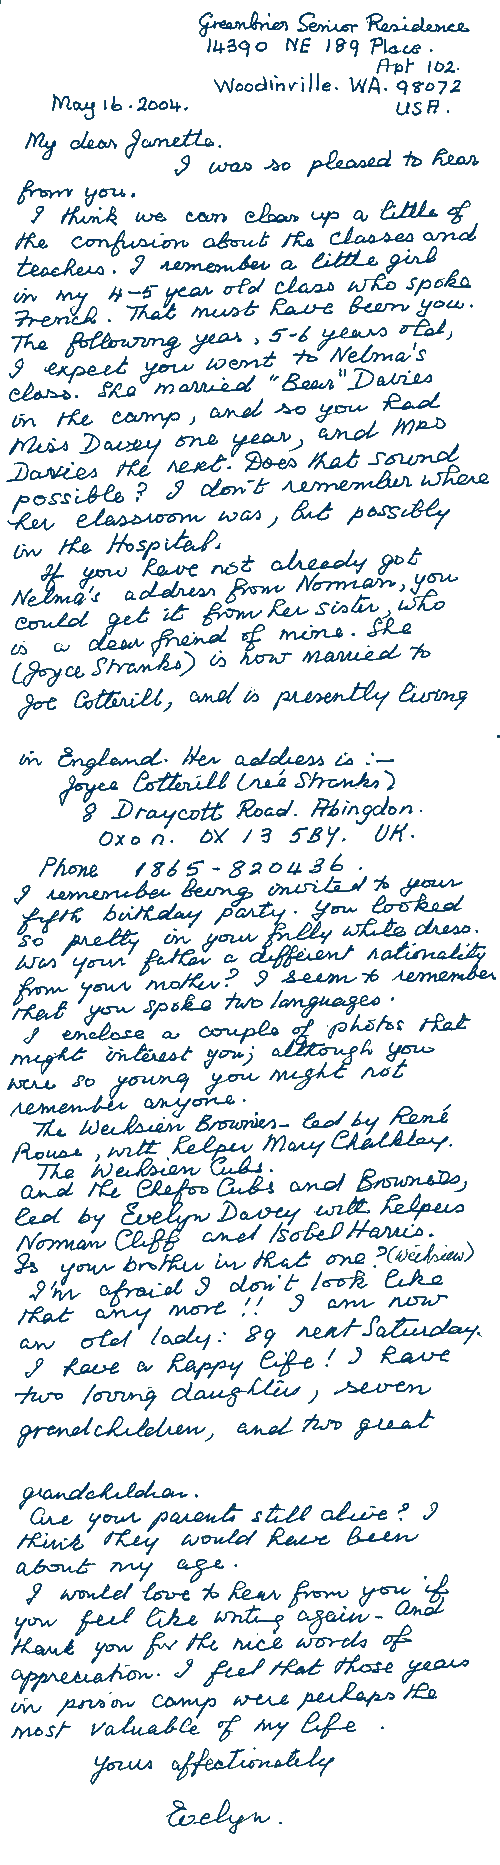 Greenbrier Senior Residence
14390 NE 189 Place.
Apt 102.
Woodinville. WA. 98072
May 16. 2004. USA.
My dear Janette.
I was so pleased to hear
from you.
I think we can clear up a little of
the confusion about the classes and
teachers. I remember a little girl
in my 4-5 year old class who spoke
French. That must have been you.
The following year, 5-6 years old,
I expect you went to Nelma's
class. She married "Bear" Davies
in the camp, and so you had
Miss Davey one year, and Mrs
Davies the next. Does that sound
possible? I don't remember where
her classroom was, but possibly
in the Hospital.
If you have not already got
Nelma's address from Norman, you
could get it from her sister, who
is a dear friend of mine. She
(Joyce Stranks) is now married to
Joe Cotterill, and is presently living
in England. Her address is :-
Joyce Cotterill (neé Stranks)
8 Draycott Road. Abingdon.
Oxon. OX 13 5BY. UK.
Phone 1865-820436.
I remember being invited to your
fifth birthday party. You looked
so pretty in your frilly white dress.
Was your father a different nationality
from your mother? I seem to remember
that you spoke two languages.
I enclose a couple of photos that
might interest you; although you
were so young you might not
remember anyone.
The Weihsien Brownies - led by René
Rouse, with helper Mary Chalkley.
The Weihsien Cubs.
and the Chefoo Cubs and Brownies,
led by Evelyn Davey with helpers
Norman Cliff and Isobel Harris.
Is your brother in that one? (Weihsien)
I'm afraid I don't look like
that any more!! I am now
an old lady: 89 next Saturday.
I have a happy life! I have
two loving daughters, seven
grandchildren, and two great
grandchildren.
Are your parents still alive? I
think they would have been
about my age.
I would love to hear from you if
you feel like writing again - And
thank you for the nice words of
appreciation. I feel that those years
in prison camp were perhaps the
most valuable of my life.
Yours affectionately
Evelyn.